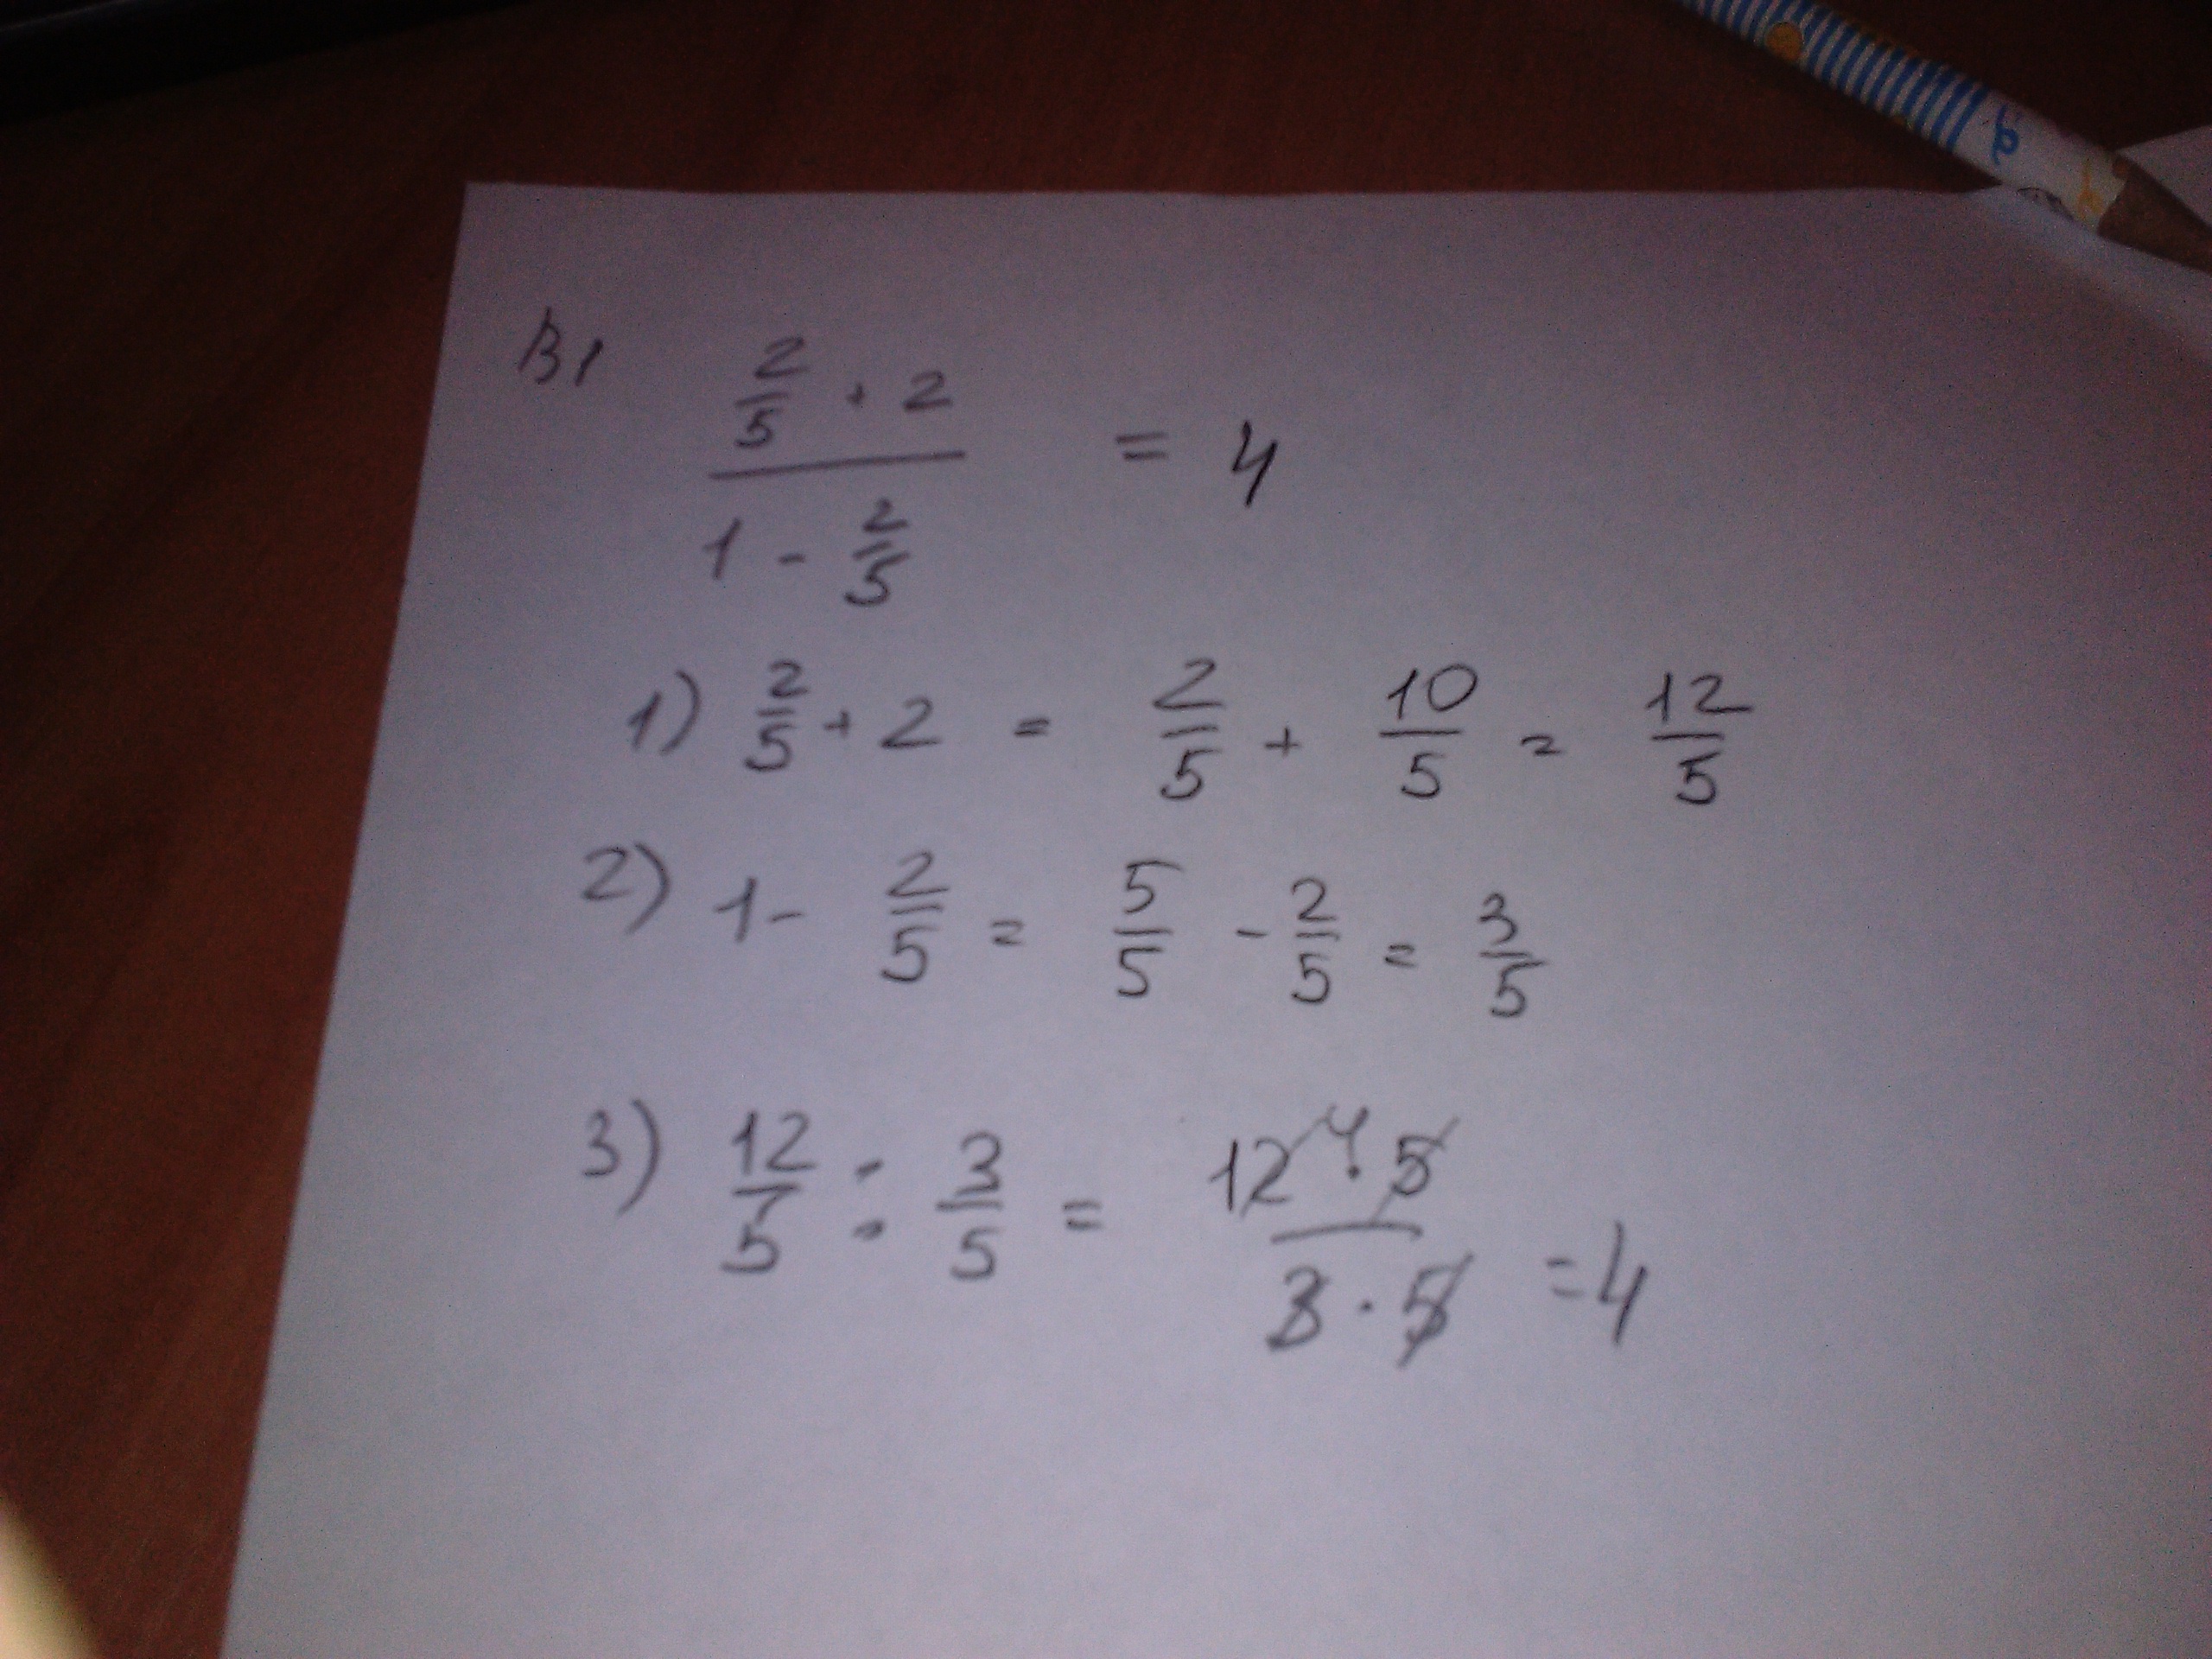 B1 (2/5 + 2)/(1 - 2/5) = 4
1) 2/5 + 2 = 2/5 + 10/5 = 12/5
2) 1 - 2/5 = 5/5 - 2/5 = 3/5
3) 12/5 : 3/5 = (12 4 · 5)/(3 · 5) = 4